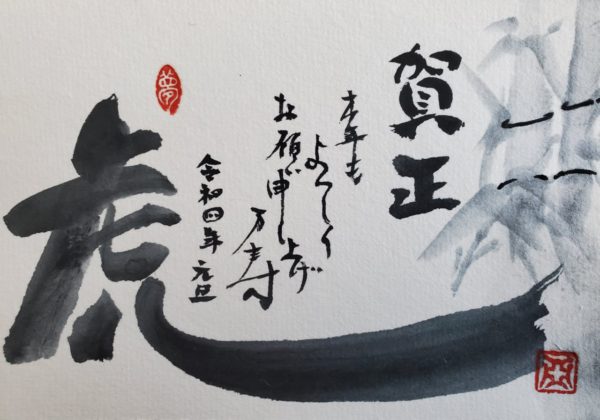 賀正
本年も
よろしく
お願い申し上げ
万す
令和四年 元旦
虎
夢